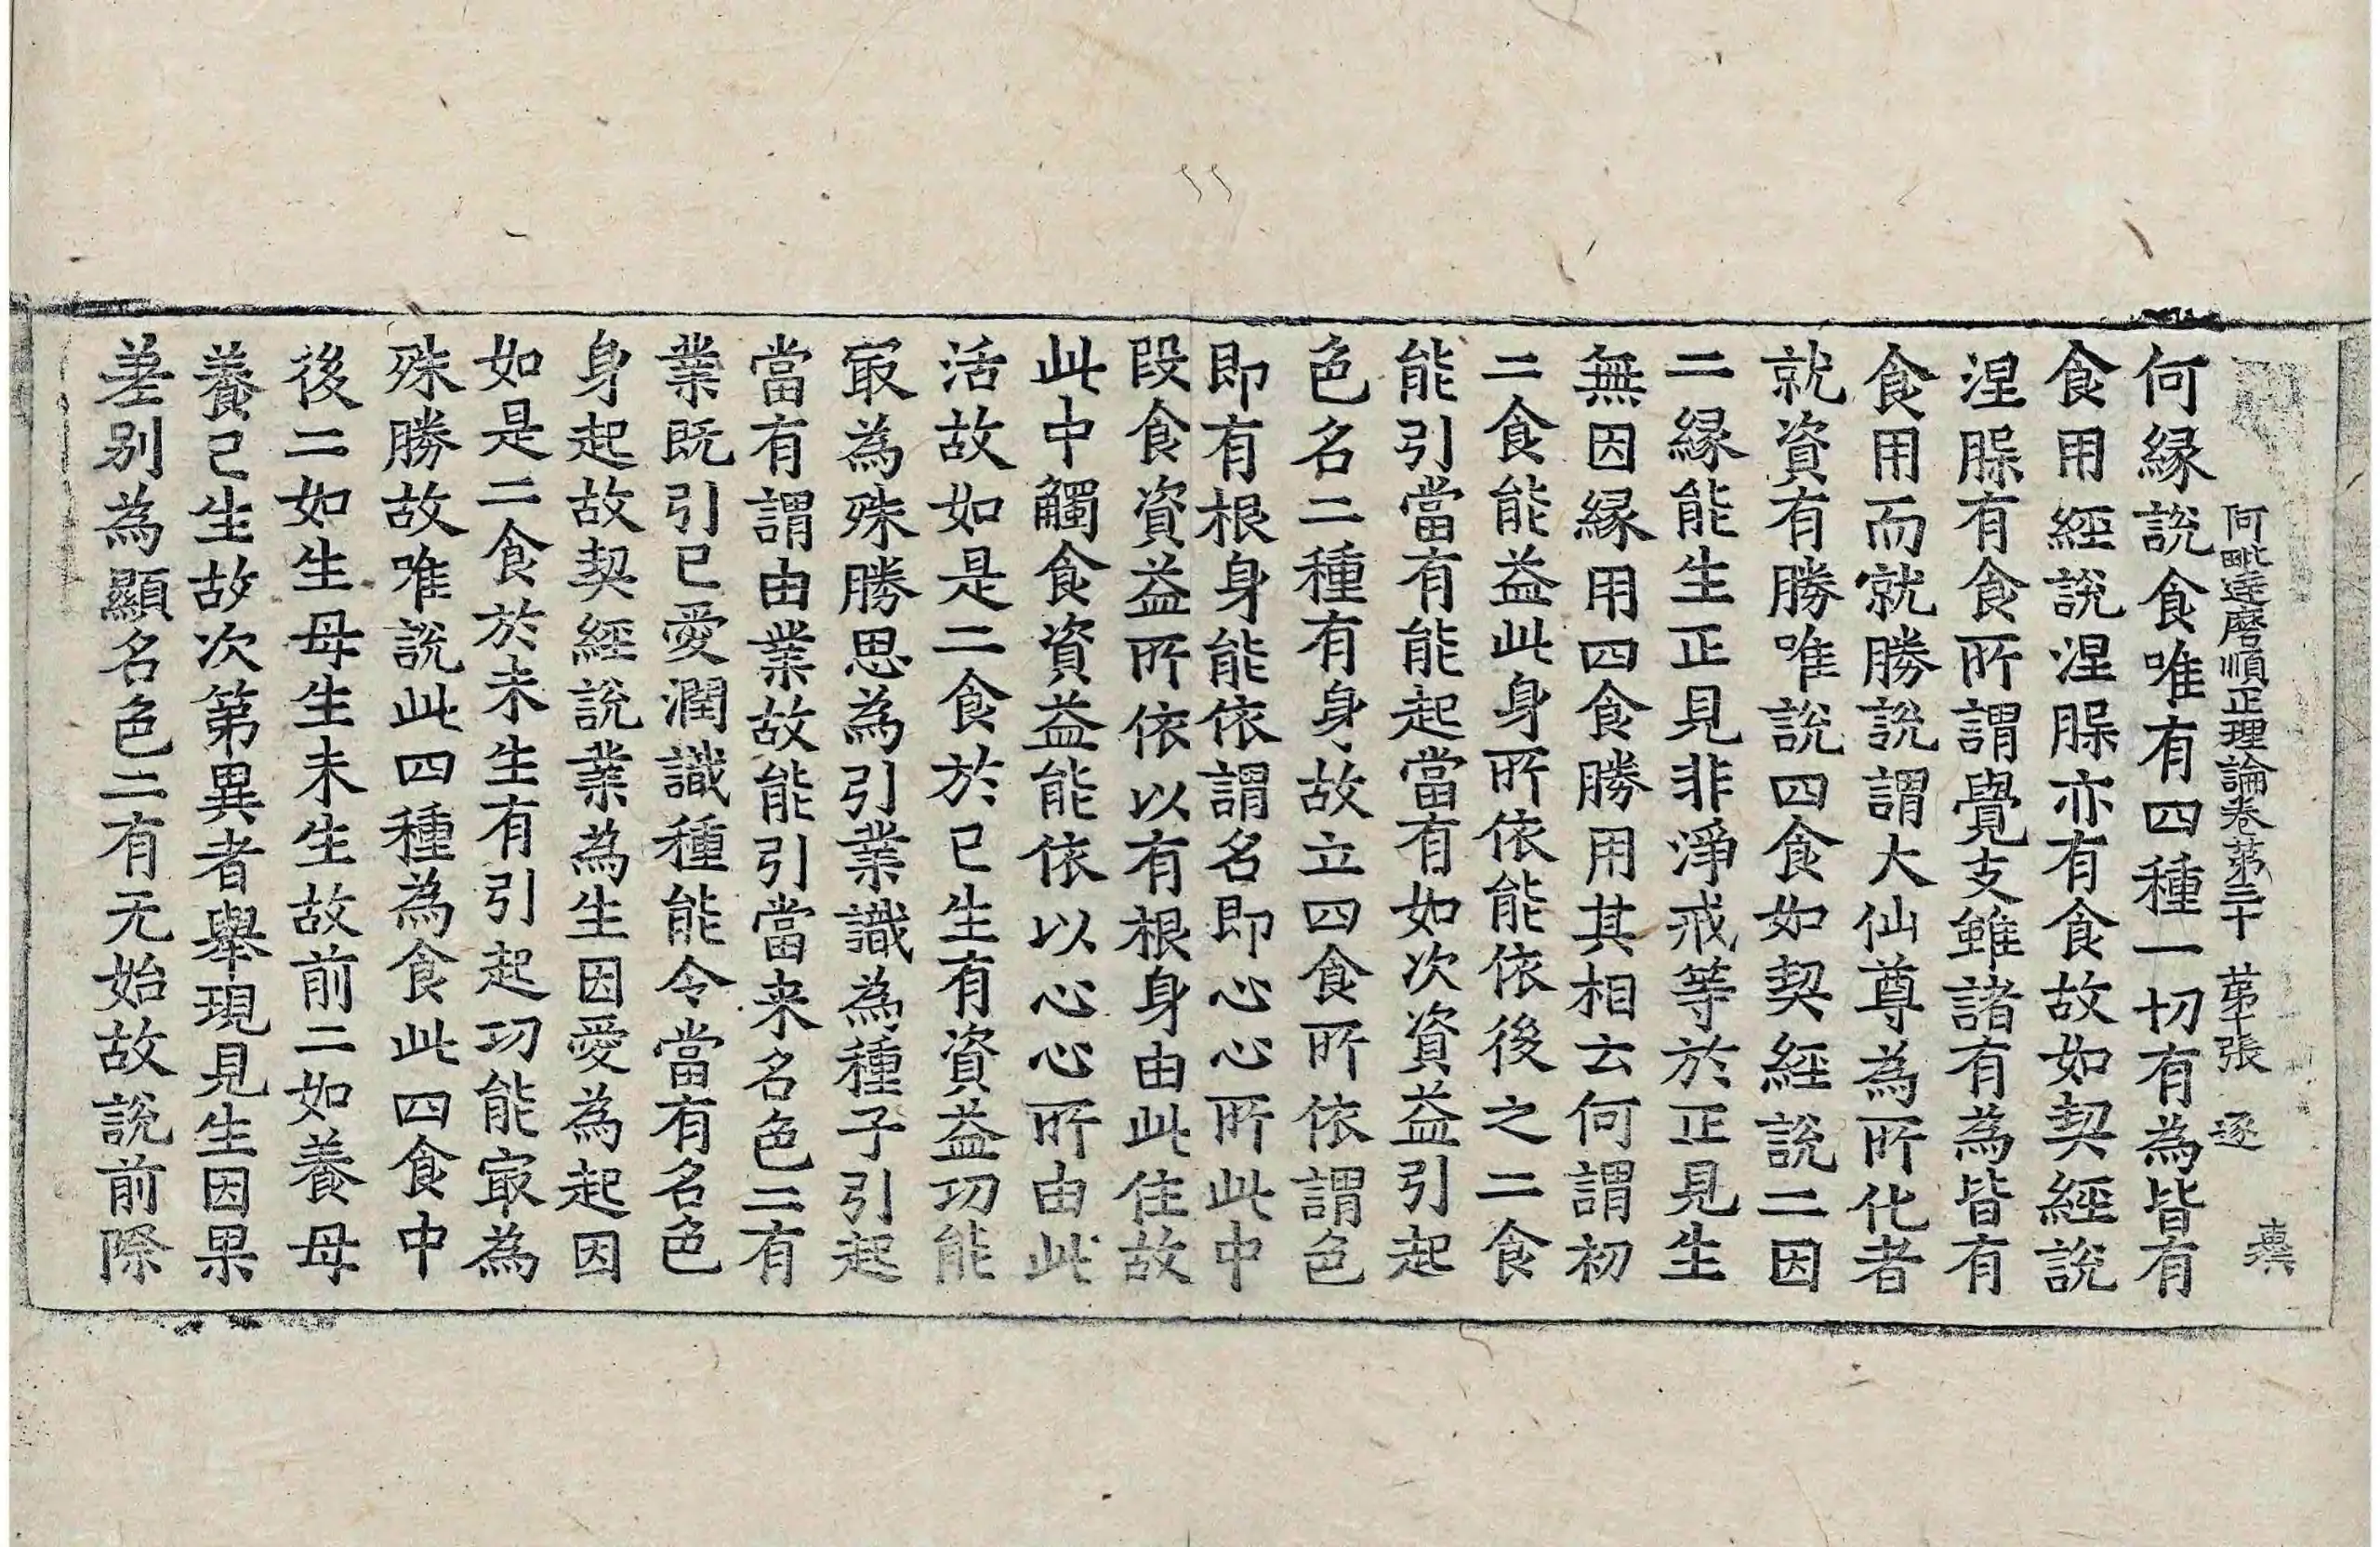 阿毗達磨順正理論卷第三十　第十張　逐
何緣說食唯有四種一切有為皆有
食用經說涅腂亦有食故如契經說
涅腂有食所謂覺支雖諸有為皆有
食用而就勝說謂大仙尊為所化者
就資有勝唯說四食如契經說二因
二緣能生正見非淨戒等於正見生
無因緣用四食勝用其相云何謂初
二食能益此身所依能依後之二食
能引當有能起當有如次資益引起
色名二種有身故立四食所依謂色
即有根身能依謂名即心心所此中
段食資益所依以有根身由此住故
此中觸食資益能依以心心所由此
活故如是二食於已生有資益功能
㝡為殊勝思為引業識為種子引起
當有謂由業故能引當来名色二有
業既引已愛潤識種能令當有名色
身起故契經說業為生因愛為起因
如是二食於未生有引起功能㝡為
殊勝故唯說此四種為食此四食中
後二如生母生未生故前二如養母
養已生故次第異者舉現見生因果
差別為顯名色二有无始故說前際